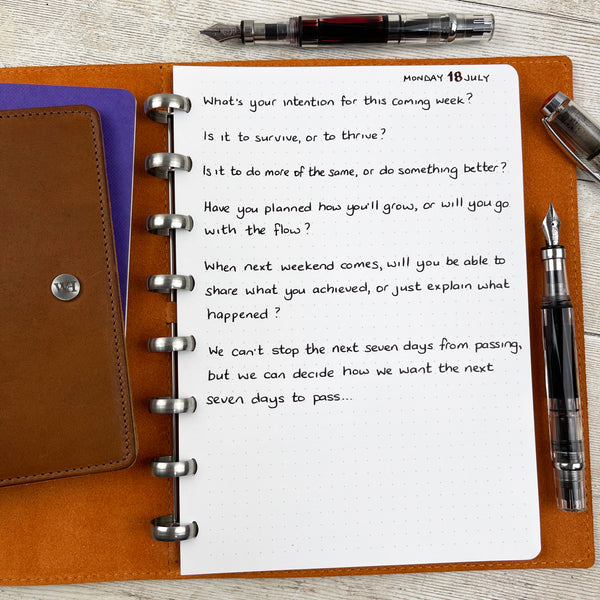 MONDAY 18 JULY
What's your intention for this coming week?
Is it to survive, or to thrive?
Is it to do more of the same, or do something better?
Have you planned how you'll grow, or will you go
with the flow?
When next weekend comes, will you be able to
share what you achieved, or just explain what
happened?
We can't stop the next seven days from passing,
but we can decide how we want the next
seven days to pass...